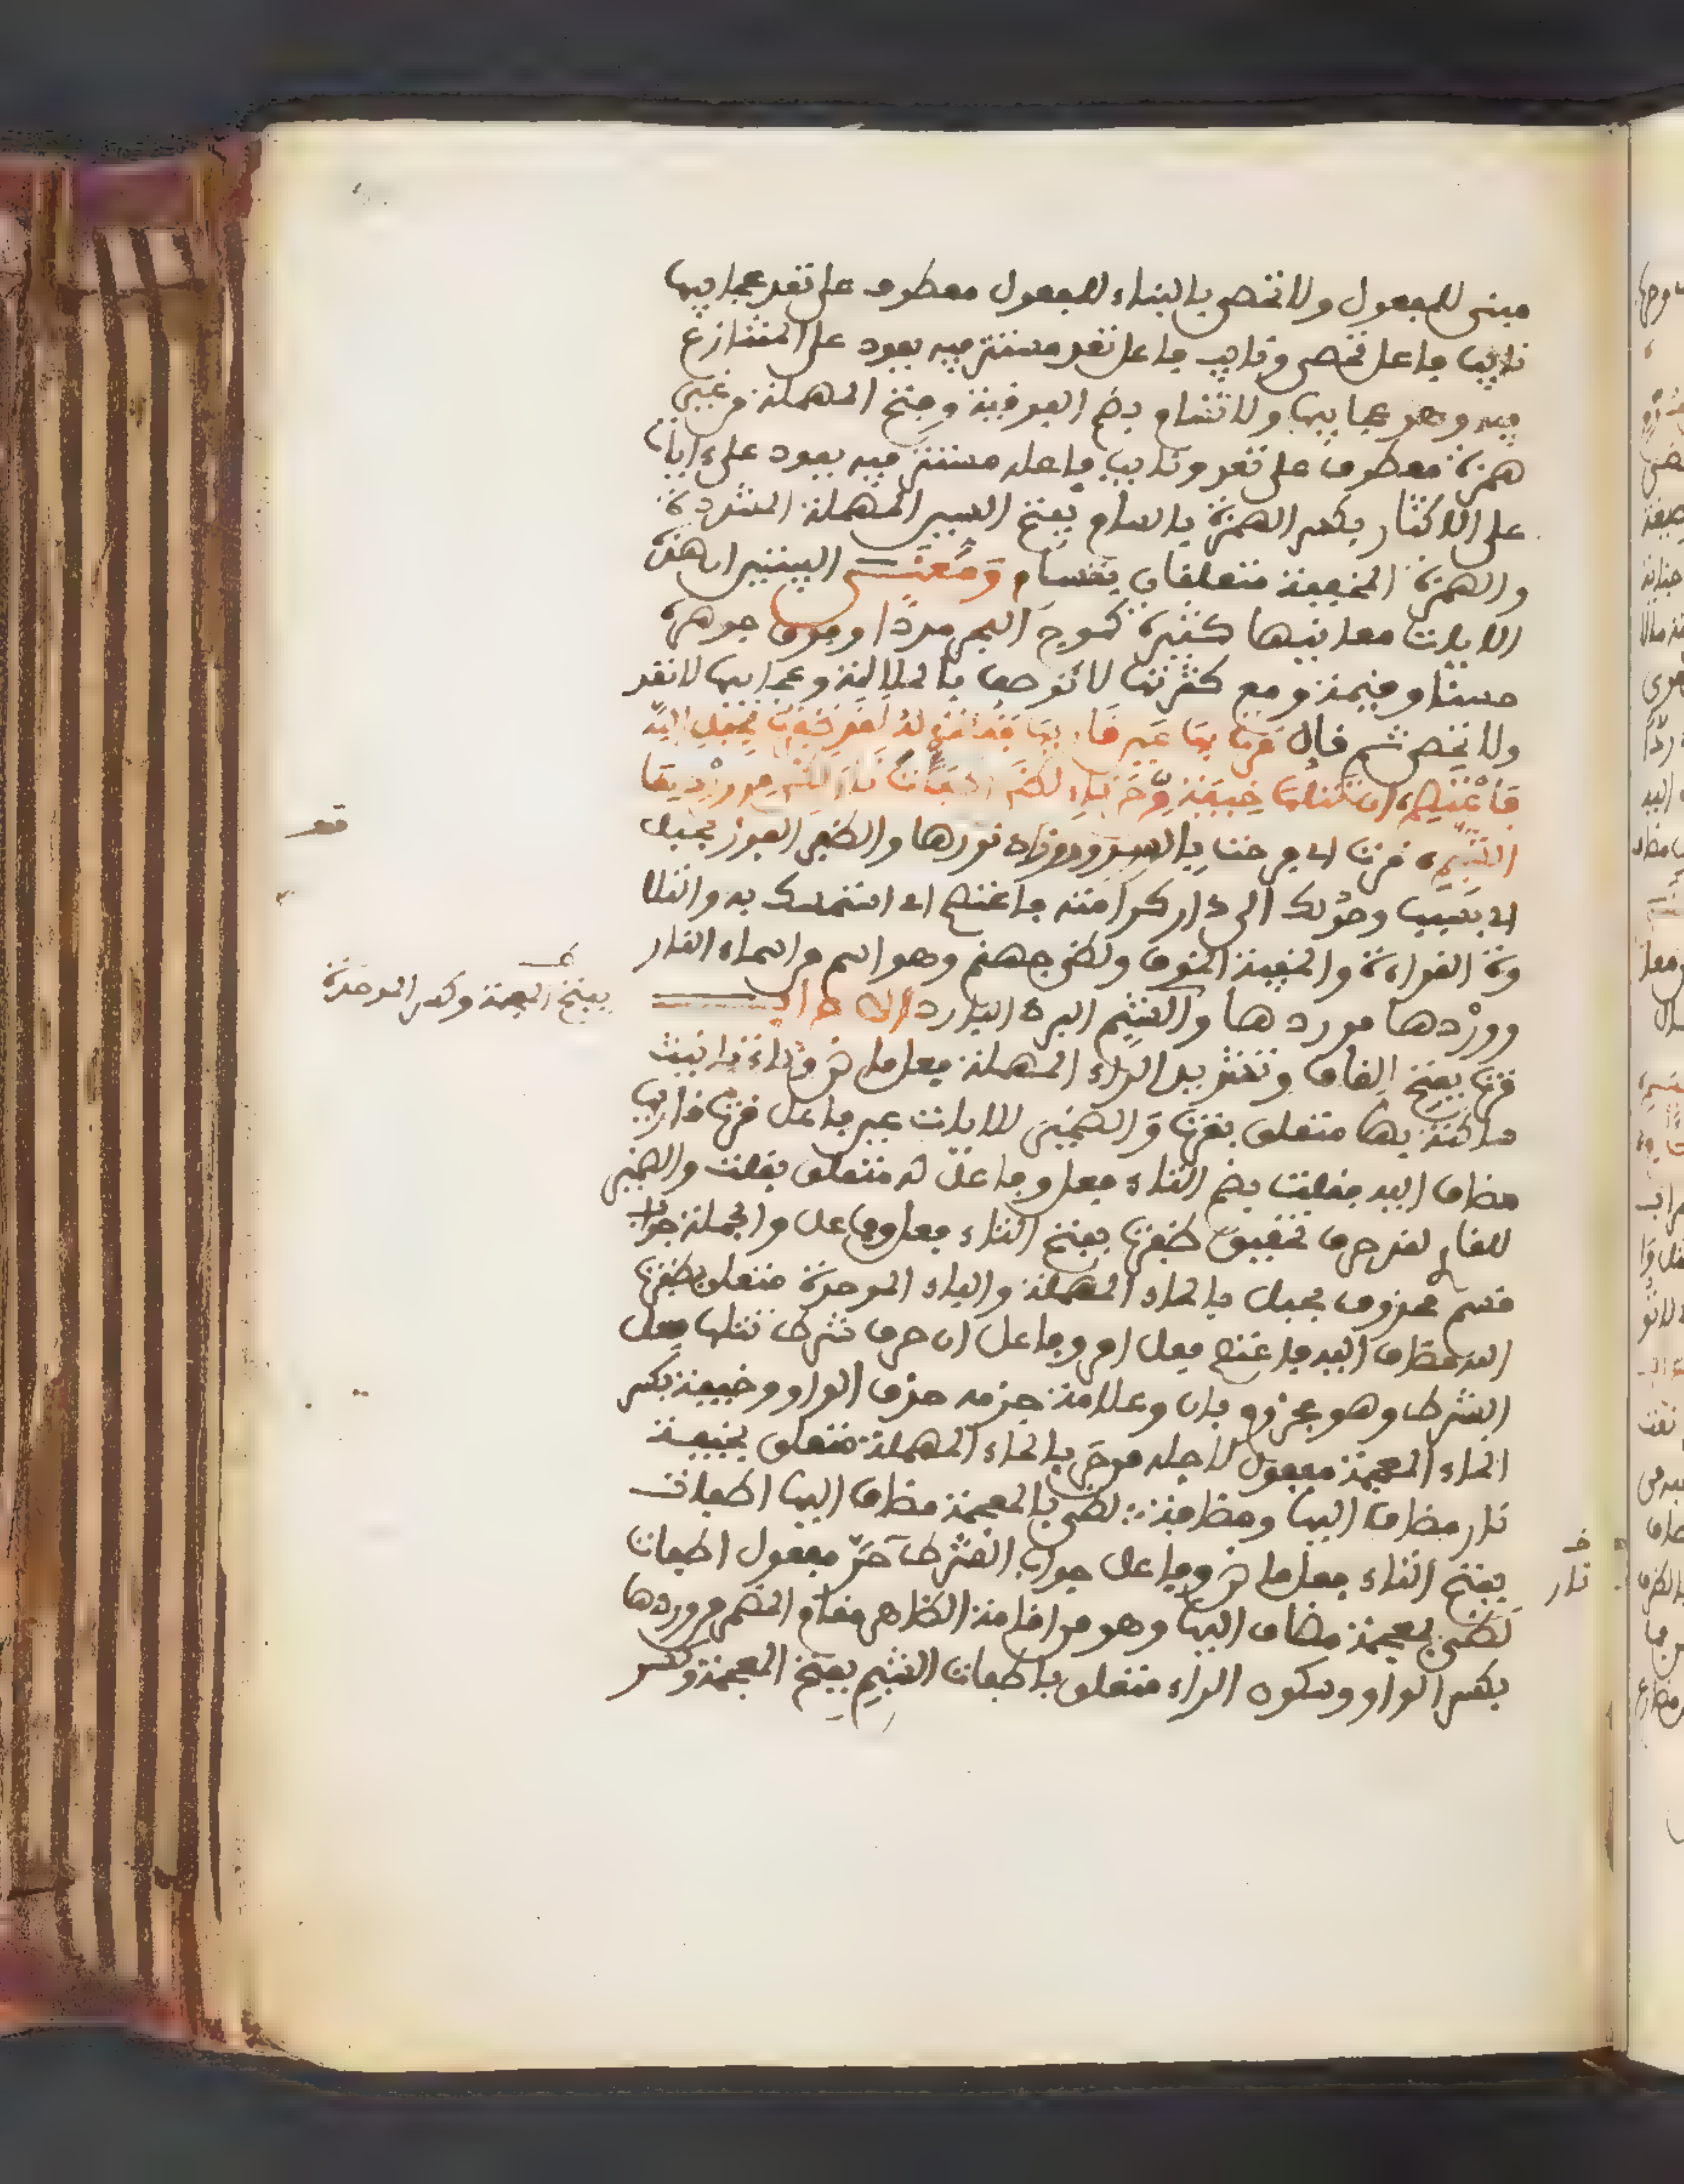 مبني للمفعول ولا تحصى بالبناء للمفعول معطوف على تعد عجايبها
نايب فاعل تحصى ونايب فاعل تعد مستتر فيه يعود على المتنازع
فيه وهو عجايبها ولا تسام بضم الفوقية وفتح المهملة وغيبى
همزة معطوف على تعد ونايب فاعله مستتر فيه يعود على ءايات
على الاكثار بكسر الهمزة بالسام بفتح السين المهملة المشددة
والهمزة الخفيفة متعلقان بتسام ومعنى البيتين ان هذه
الايات معانيها كثيرة كموج البحر مددا وفوق جوهره
حسنا وقيمة ومع كثرتها لا توصف بالملالة وعجايبها لا تعد
ولا تحصى ثم قال قرت بها عين قاريها فقلت له لقد ظفرت بحبل الله
فاعتصم ان تتلها خيفة من حر نار لظى اطفات نار لظى من وردها
الشبم قرت اي فرحت بالسرور وزاد نورها والظفر الفوز بحبل
اي بسبب وصولك الى دار كرامته فاعتصم اي استمسك به والتلا
وة القراءة والخيفة الخوف ولظى جهنم وهو اسم من اسماء النار
ووردها موردها والشبم البرد البارد الاعراب
قرت بفتح القاف وتشديد الراء المهملة فعل ماض وتاء تانيث
ساكنة بها متعلق بقرت والضمير للايات عين فاعل قرت قاريها
مضاف اليه فقلت بضم التاء فعل وفاعل له متعلق بقلت والضمير
للقارئ لقد حرف تحقيق ظفرت بفتح التاء فعل وفاعل والجملة جواب
قسم محذوف بحبل بالحاء المهملة والباء الموحدة متعلق بظفرت
الله مضاف اليه فاعتصم فعل امر وفاعل ان حرف شرط تتلها فعل
الشرط وهو مجزوم بان وعلامة جزمه حذف الواو وخيفة بكسر
الخاء المعجمة مفعول لاجله من حر بالحاء المهملة متعلق بخيفة
نار مضاف اليها ومضافة لظى بالمعجمة مضاف اليها اطفات
بفتح التاء فعل ماض وفاعل جواب الشرط حر مفعول اطفات
لظى بمعجمة مضاف اليها وهو من اقامة الظاهر مقام المضمر من وردها
بكسر الواو وسكون الراء متعلق باطفات الشبم بفتح المعجمة وكسر
بفتح المعجمة وكسر الموحدة
نار